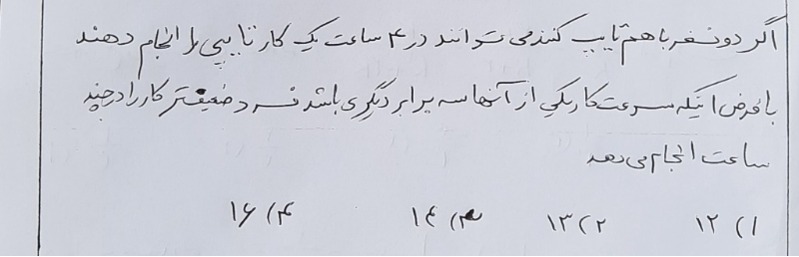 اگر دو نفر با هم تایپ کنند می توانند در ۴ ساعت یک کار تایپی را انجام دهند
با فرض اینکه سرعت کار یکی از آنها سه برابر دیگری باشد فرد ضعیفتر کار را در چند
ساعت انجام می دهد
۱) ۱۲ ۲) ۱۳ ۳) ۱۴ ۴) ۱۶